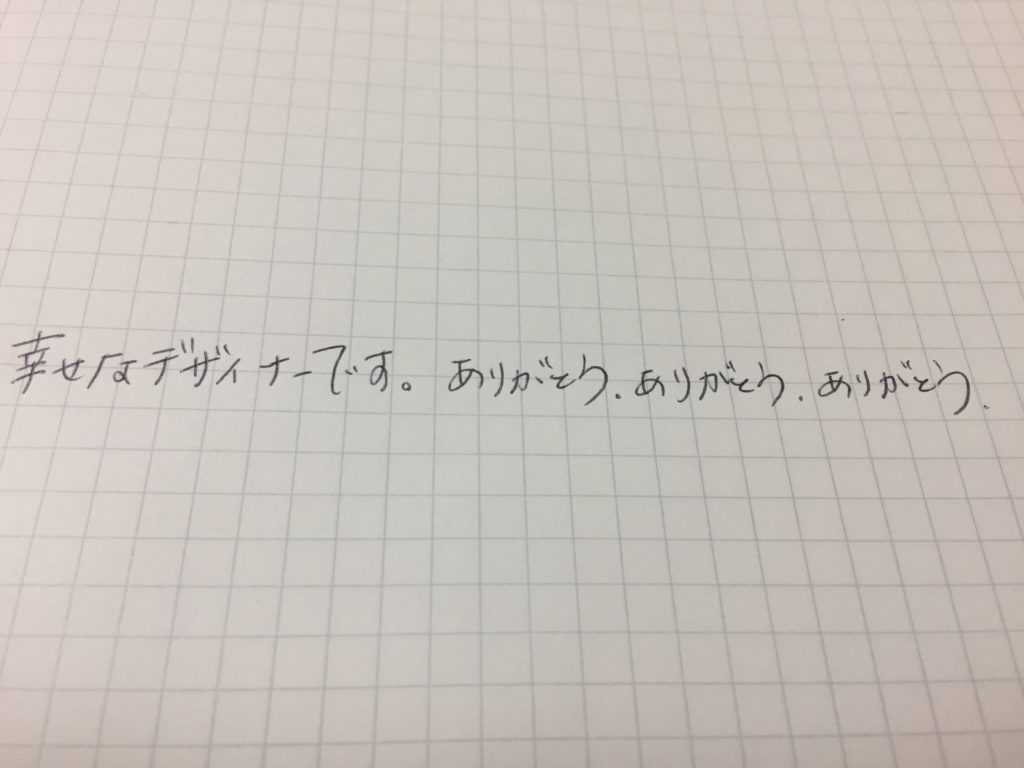 幸せなデザイナーです。ありがとう.ありがとう.ありがとう.